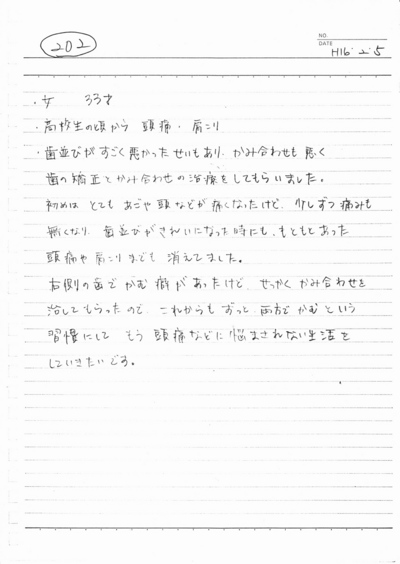 202
NO.
DATE H16・2・5
・女 33才
・高校生の頃から 頭痛・肩こり
・歯並びがすごく悪かったせいもあり、かみ合わせも悪く
歯の矯正とかみ合わせの治療をしてもらいました。
初めは とても あごや頭などが痛くなったけど、少しずつ痛みも
無くなり、歯並びがきれいになった時にも、もともとあった
頭痛や肩こりまでも 消えてました。
右側の歯で かむ癖があったけど、せっかく かみ合わせを
治してもらったので、これからもずっと 両方で かむ という
習慣にして もう 頭痛などに悩まされない生活を
していきたいです。